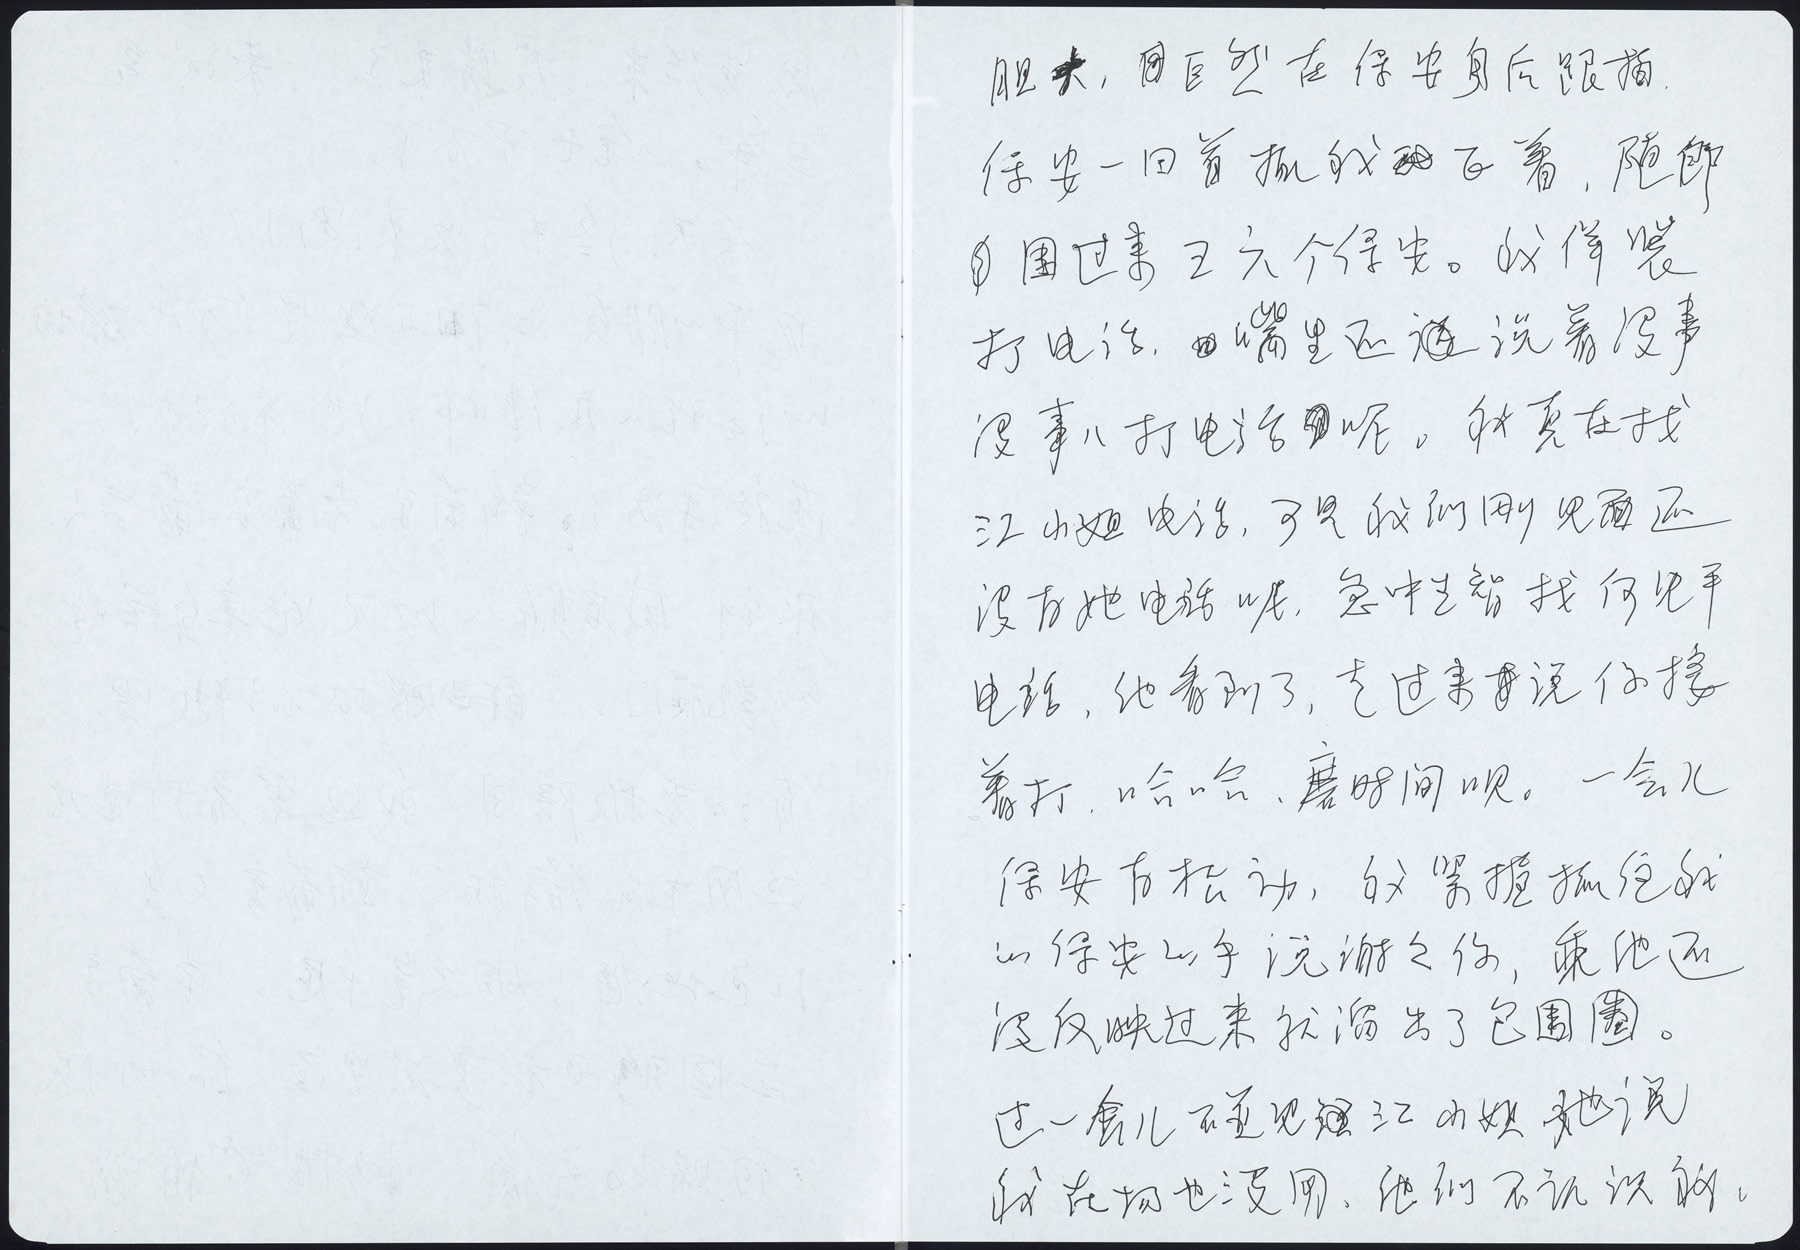 胆大，巨然在保安身后跟拍.
保安一回首抓我正着，随即
围过来五六个保安。我佯装
打电话，嘴里还说着没事
没事儿打电话呢。我真在找
江小姐电话，可是我们刚见面还
没有她电话呢，急中生智找何电平
电话，他看到了，走过来说你接
着打，哈哈，磨时间呗。一会儿
保安有松动，我紧握抓住我
的保安的手说谢谢你，乘他还
没反映过来就溜出了包围圈。
过一会儿碰见江小姐她说
我在场也没用，他们不认识我，